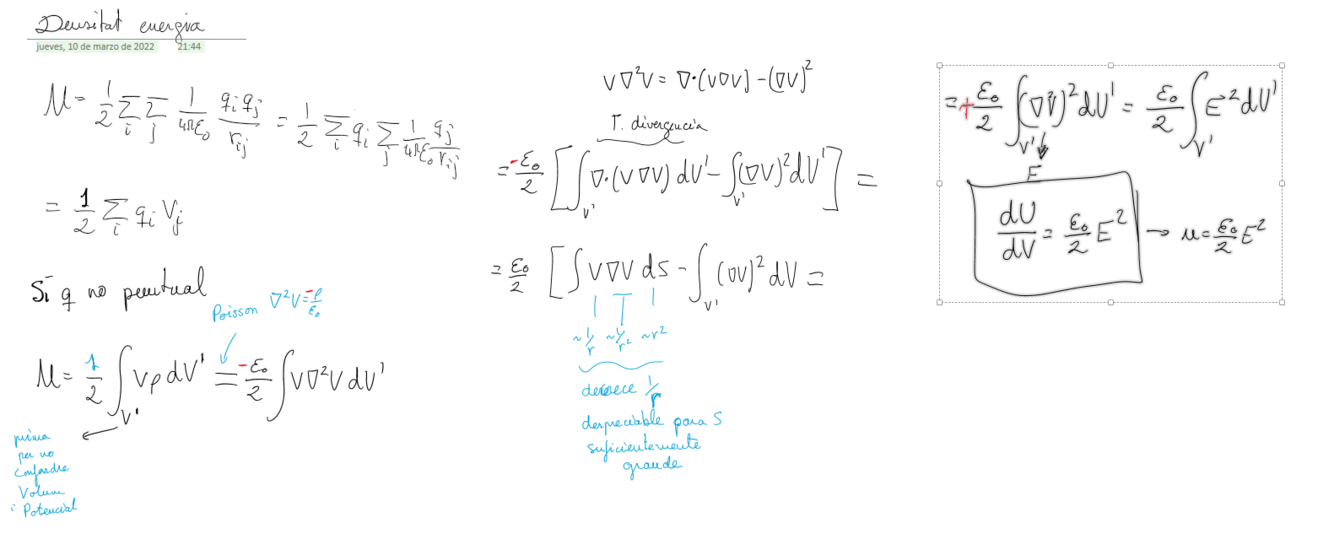 Densitat energia
jueves, 10 de marzo de 2022 21:44
U = 1/2 Σ_i Σ_j 1/(4πε₀) q_i q_j / r_ij = 1/2 Σ_i q_i Σ_j 1/(4πε₀) q_j / r_ij
= 1/2 Σ_i q_i V_j
Si q no puntual
Poisson ∇²V = -ρ/ε₀
U = 1/2 ∫_V' Vρ dV' = -ε₀/2 ∫ V∇²V dV'
prima
per no
confondre
Volum
i Potencial
V∇²V = ∇·(V∇V) - (∇V)²
T. divergencia
= -ε₀/2 [ ∫_V' ∇·(V∇V) dV' - ∫_V' (∇V)² dV' ] =
= ε₀/2 [ ∫ V∇V dS - ∫_V' (∇V)² dV =
~1/r ~1/r² ~r²
decrece 1/r
despreciable para S
suficientemente
grande
= +ε₀/2 ∫_V' (∇V)² dV' = ε₀/2 ∫_V' E² dV'
E
dU/dV = ε₀/2 E² → u = ε₀/2 E²